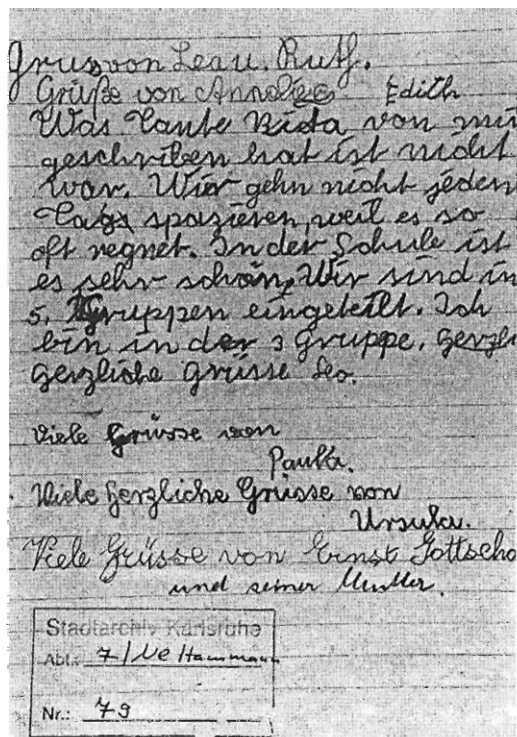 Gruss von Leau. Ruth.
Grüße von Annelies Edith
Was Tante Rista von mir
geschriben hat ist nicht
war. Wier gehn nicht jeden
Tags spazieren, weil es so
oft regnet. In der Schule ist
es sehr schön, Wir sind in
5. Gruppen eingeteilt. Ich
bin in der 3 Gruppe. Herzli
Herzliche Grüsse Leo.
Viele Grüsse von
Paula.
Viele Herzliche Grüsse von
Ursula.
Viele Grüsse von Ernst Gottscho
und seiner Mutter.
Stadtarchiv Karlsruhe
Abt.: 7/Ne Hausmann
Nr.: 79